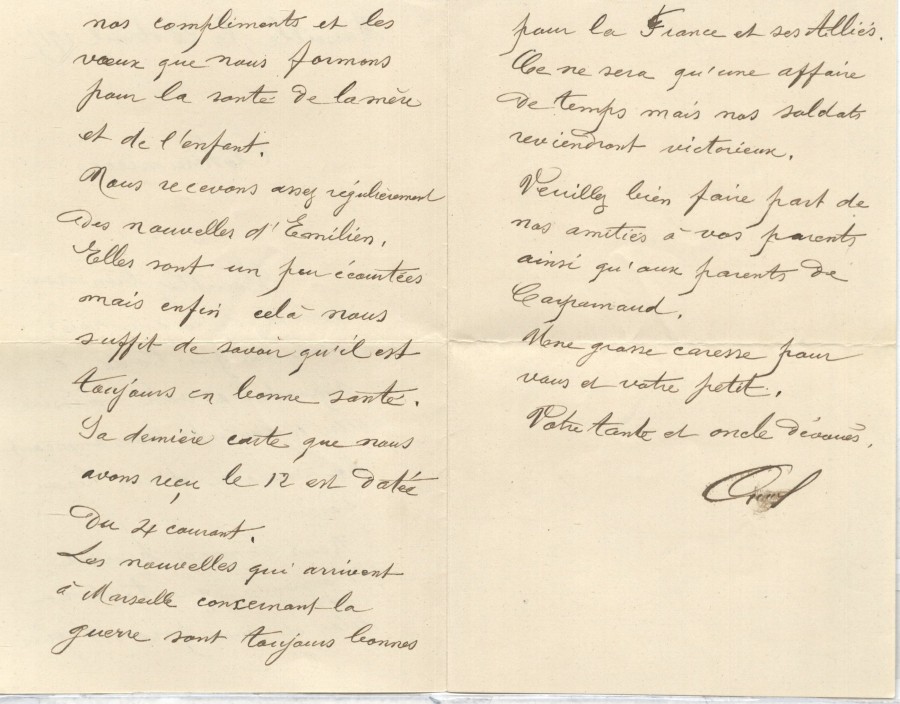 nos compliments et les
vœux que nous formons
pour la santé de la mère
et de l'enfant.
Nous recevons assez régulièrement
des nouvelles d'Emilien.
Elles sont un peu écourtées
mais enfin celà nous
suffit de savoir qu'il est
toujours en bonne santé.
Sa dernière carte que nous
avons reçu le 12 est datée
du 4 courant.
Les nouvelles qui arrivent
à Marseille concernant la
guerre sont toujours bonnes
pour la France et ses Alliés.
Ce ne sera qu'une affaire
de temps mais nos soldats
reviendront victorieux.
Veuillez bien faire part de
nos amitiés à vos parents
ainsi qu'aux parents de
Une grosse caresse pour
vous et votre petit.
Votre tante et oncle dévoués.